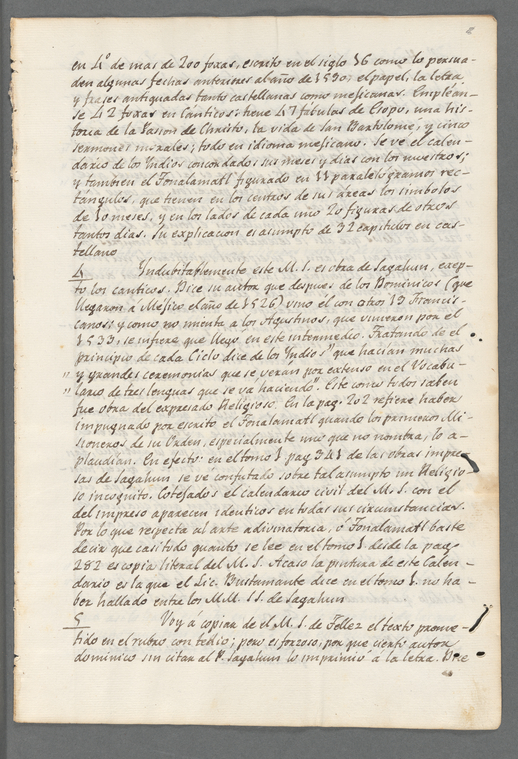 2
en 4º de mas de 200 foxas, escrito en el siglo 16 como lo persua-
den algunas fechas anteriores al año de 1530; el papel, la letra
y frases antiquadas tanto castellanas como mejicanas. Emplean-
se 42 foxas en canticos: tiene 47 fábulas de Esopo, una his-
toria de la Pasion de Christo, la vida de San Bartolomé, y cinco
sermones morales; todo en idioma mejicano. Se vé el calen-
dario de los Yndios concordado, sus meses y dias con los nuestros;
y tambien el Tonalamatl figurado en 11 paralelogramos rec-
tángulos, que tienen en los centros de sus áreas los símbolos
de 10 meses, y en los lados de cada uno 20 figuras de otros
tantos dias. Su explicacion es asumpto de 32 capitulos en cas-
tellano
4 Yndubitablemente este M.S. es obra de Sagahun, exep-
to los canticos. Dice su autor que despues de los Dominicos (que
llegaron a Mejico el año de 1526) vino él con otros 13 Francis-
canos: y como no mienta a los Agustinos, que vinieron por el
1533, se infiere que llego en este intermedio. Tratando de el
principio de cada Ciclo dice de los Yndios "que hacian muchas
" y grandes ceremonias que se veran por extenso en el Vocabu-
" lario de tres lenguas que se va haciendo". Este como todos saben
fue obra del expresado Religioso. En la pag. 202 refiere haber
impugnado por escrito el Tonalamatl quando los primeros Mi-
sioneros de su Orden, especialmente uno que no nombra, lo a-
plaudian. En efecto: en el tomo 1. pag 341 de las obras impre-
sas de Sagahun se ve confutado sobre tal asumpto un Religio-
so incognito. Cotejados el calendario civil del M.S. con el
del impreso aparecen identicos en todas sus circunstancias.
Por lo que respecta al arte adivinatoria, o Tonalamatl baste
decir que casi todo quanto se lee en el tomo 1. desde la pag-
282 es copia literal del M.S. Acaso la pintura de este Calen-
dario es la que el Lic. Bustamante dice en el tomo 1. no ha-
ber hallado entre los M.M. S.S. de Sagahun
5 Voy á copiar de el M.S. de Tellez el texto prome-
tido en el rubro con tedio; pero es forzoso, por que cierto autor
dominico sin citar al P. Sagahun lo imprimió á la letra. Dice